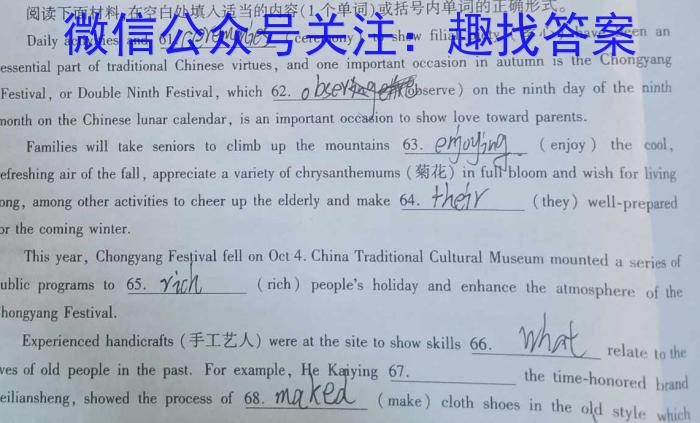 阅读下面材料,在空白处填入适当的内容(1个单词)或括号内单词的正确形式。
微信公众号关注：趣找答案
Daily and 61. ceremonies (ceremony) to show filial have been an
essential part of traditional Chinese virtues, and one important occasion in autumn is the Chongyang
Festival, or Double Ninth Festival, which 62. (observe) on the ninth day of the ninth
month on the Chinese lunar calendar, is an important occasion to show love toward parents.
Families will take seniors to climb up the mountains 63. enjoying (enjoy) the cool,
efreshing air of the fall, appreciate a variety of chrysanthemums (菊花) in full bloom and wish for living
ong, among other activities to cheer up the elderly and make 64. their (they) well-prepared
or the coming winter.
This year, Chongyang Festival fell on Oct 4. China Traditional Cultural Museum mounted a series of
ublic programs to 65. rich (rich) people's holiday and enhance the atmosphere of the
hongyang Festival.
Experienced handicrafts (手工艺人) were at the site to show skills 66. what relate to the
ves of old people in the past. For example, He Kaiying 67. the time-honored brand
eiliansheng, showed the process of 68. maked (make) cloth shoes in the old style which